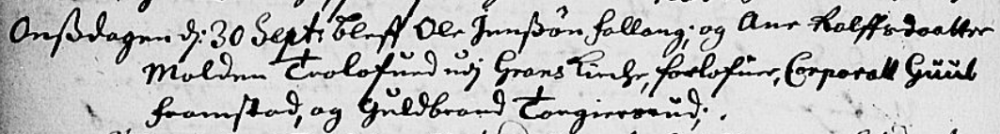 Onsdagen dj: 30 Septr: bleff Ole Jenssøn Hollang; og Ane Rolffsdaatter
Molden Trolofued udj Grans Kirche, forlofuer, Corporall Gúúl
framstad, og Gúldbrand Torgiersrud;.